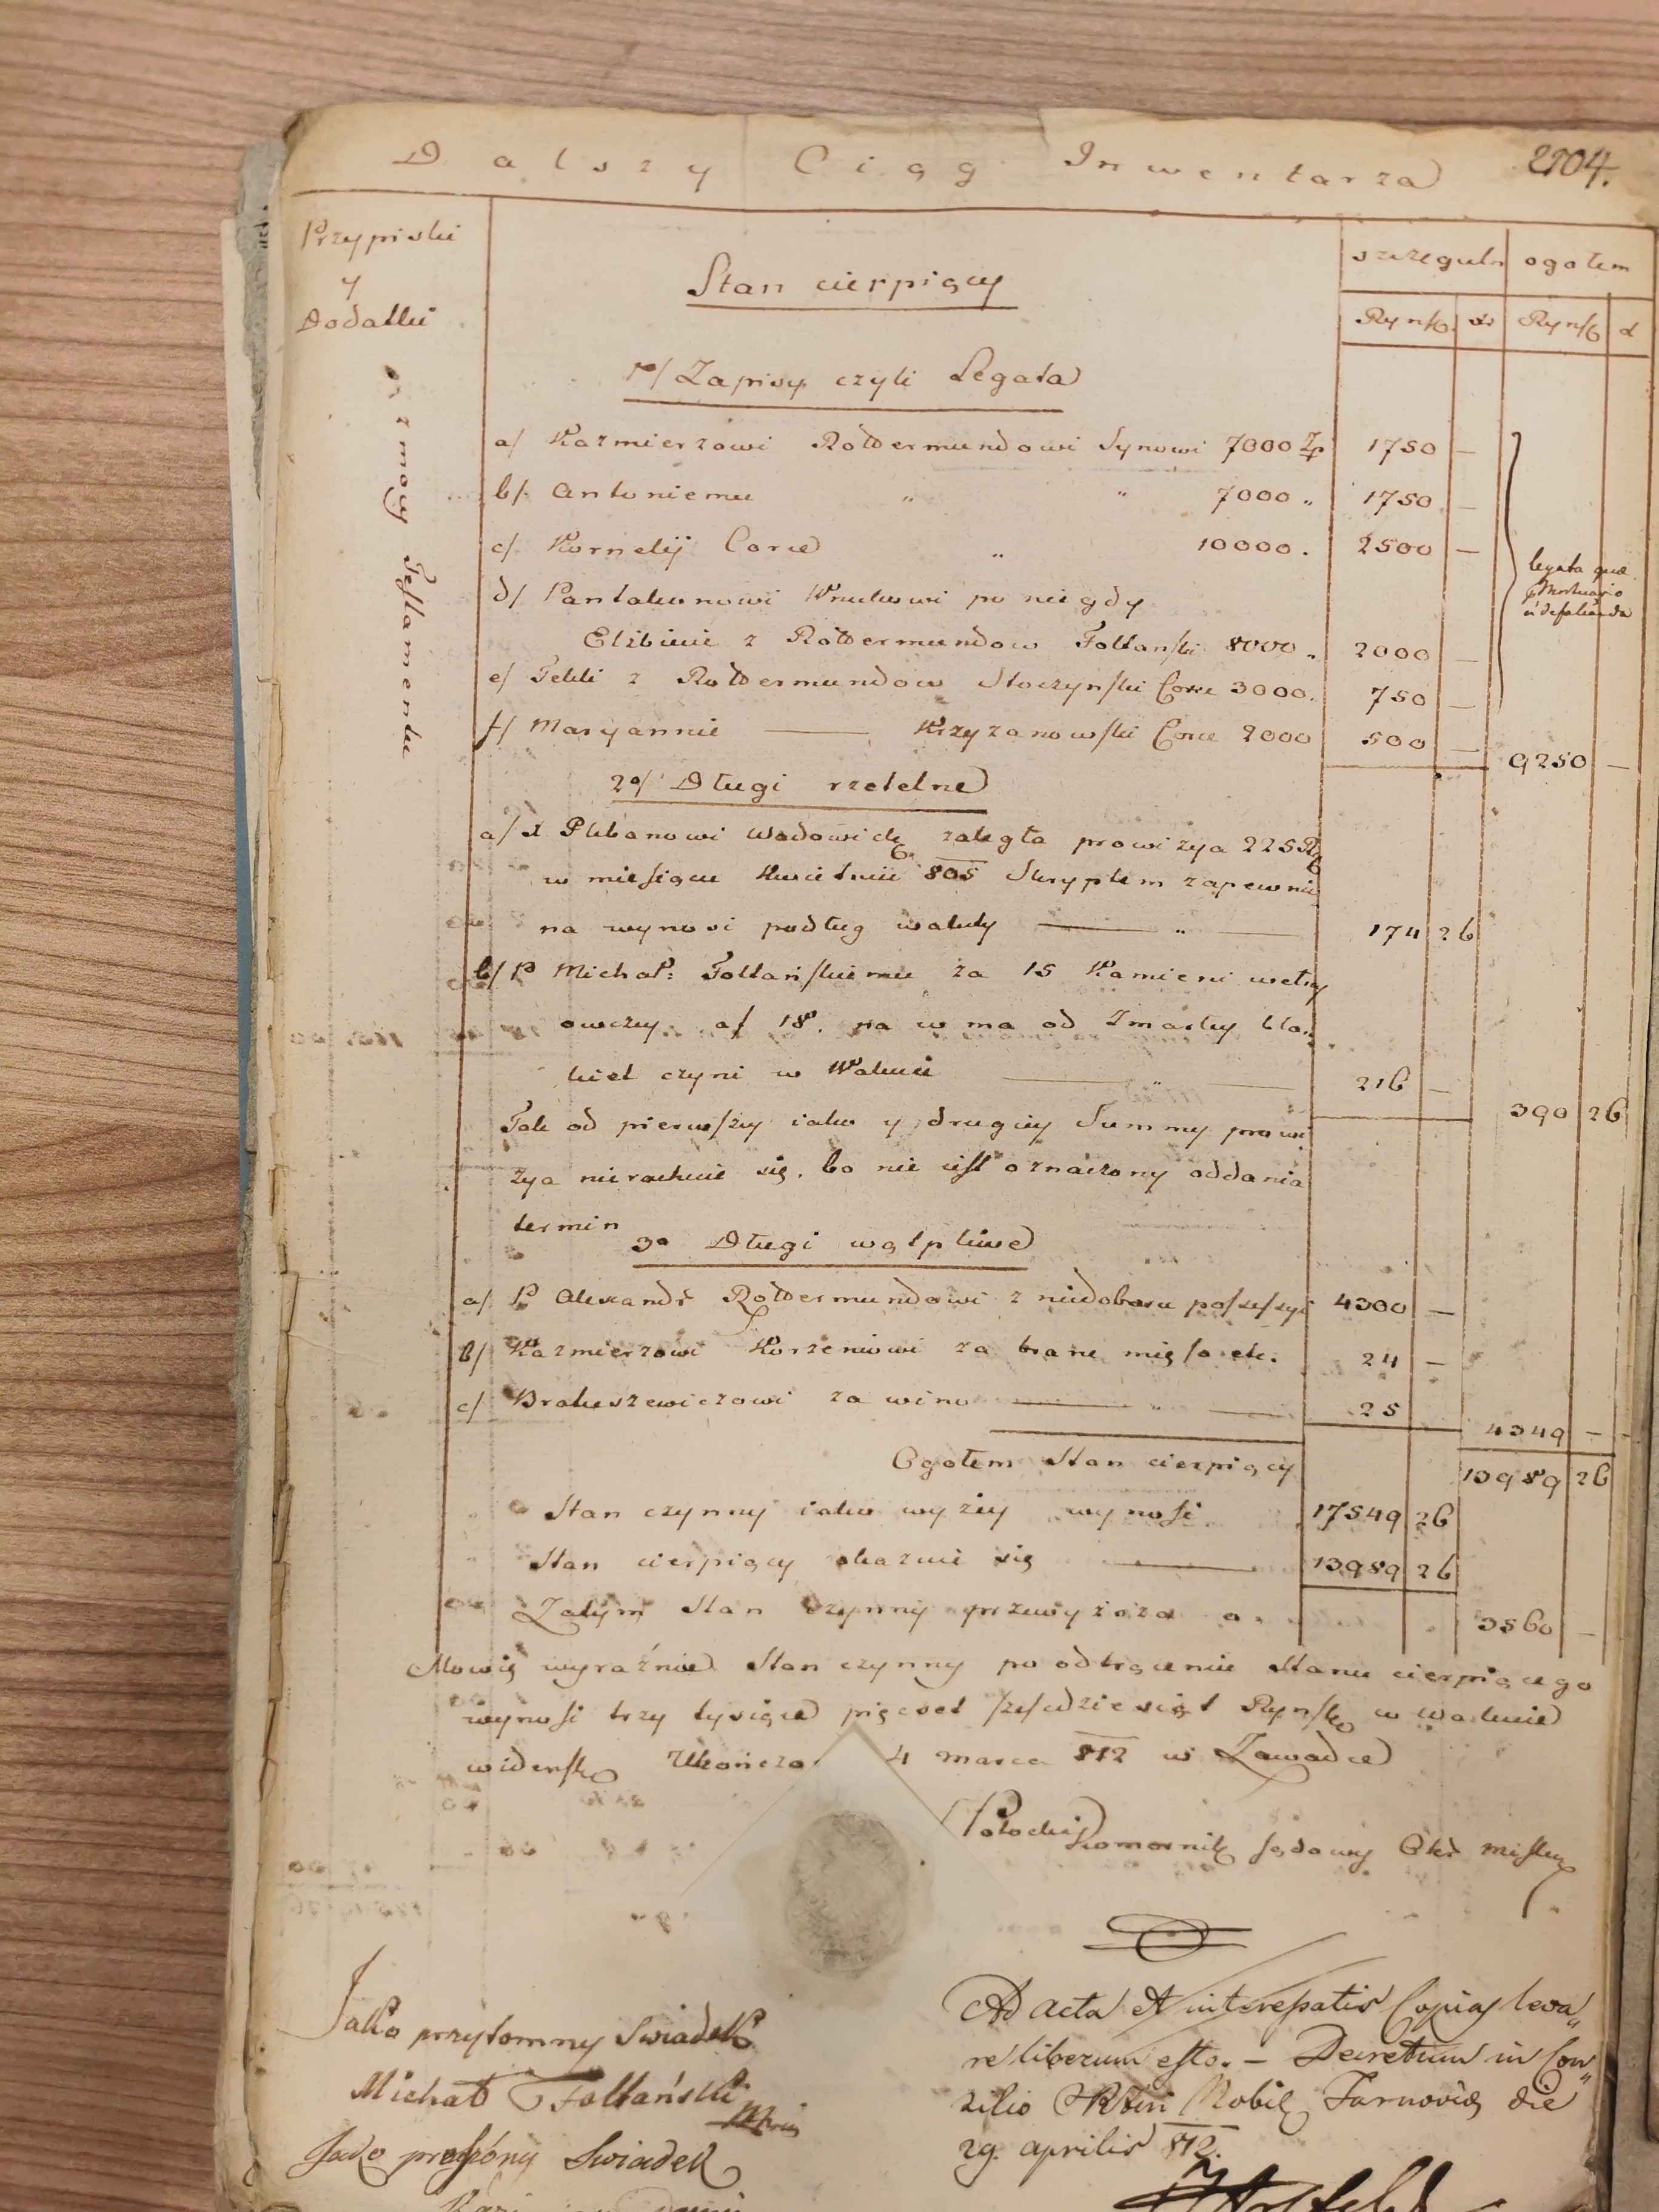 Dalszy Ciąg Inwentarza 2104.
Przypiski
y
Dodatki
szczeguln ogołem
Ryńsk xr Ryńsk x
Stan cierpiący
1o/ Zapisy czyli Legata
z mocy Testamentu
a/ Kazmierzowi Rottermundowi Synowi 7000 Zp 1750 —
b/ Antoniemu " " 7000 " 1750 —
c/ Kornelij Corce " 10000 . 2500 —
legata quae
Mortuario
defalcanda
d/ Pantalunowi Wnukowi po niegdy
Elzbiecie z Rottermundow Foltański 8000 " 2000 —
e/ Tekli z Rottermundow Stoczynski Corce 3000. 750 —
f/ Maryannie — Krzyzanowski Corce 2000 500 — 9250 —
2o/ Długi rzetelne
a/ X Plebanowi Wadowickiemu zaległa prowizya 225 R
w miesiącu Kwietniu 805 Skryptem zapewnio
na wynosi podług waluty — " — 174 26
b/ P Michał: Foltańskiemu za 15 Kamieni wełny
owczey a/ 18. na w ma od Zmarłey bla
kiet czyni w Walucie — " — 216 — 390 26
Tak od pierwszey iako y drugiey Summy prowi
zya nierachuie się, bo nie iest oznaczony oddania
termin
3o Długi wątpliwe
a/ P Alexandr Rottermundowi z niedoboru possessyi 4300 —
b/ Kazmierzowi Korzeniowi za brane mięso etc. 24 —
c/ Brakuszewiczowi za wino — " — 25 4349 —
Ogołem Stan cierpiący 13989 26
Stan czynny iako wyżey wynosi 17549 26
Stan cierpiący okazuie się — 13989 26
Zatym Stan czynny przewyższa o 3560 —
Mowię wyraźnie Stan czynny po odtrąceniu Stanu cierpiącego
wynosi trzy tysiące pięcset sześćdziesiąt Ryńsk w walucie
widensk Ukończo 4 marca 812 w Zawadce
Potocki
Komornik sądowy
Jako przytomny Swiadek
Michał Foltański
Jako proszony Swiadek
Ad acta et interessatis Copias leva"
re liberum esto. — Decretum in Con"
silio Fori Nobil. Tarnoviae die
29. aprilis 812.